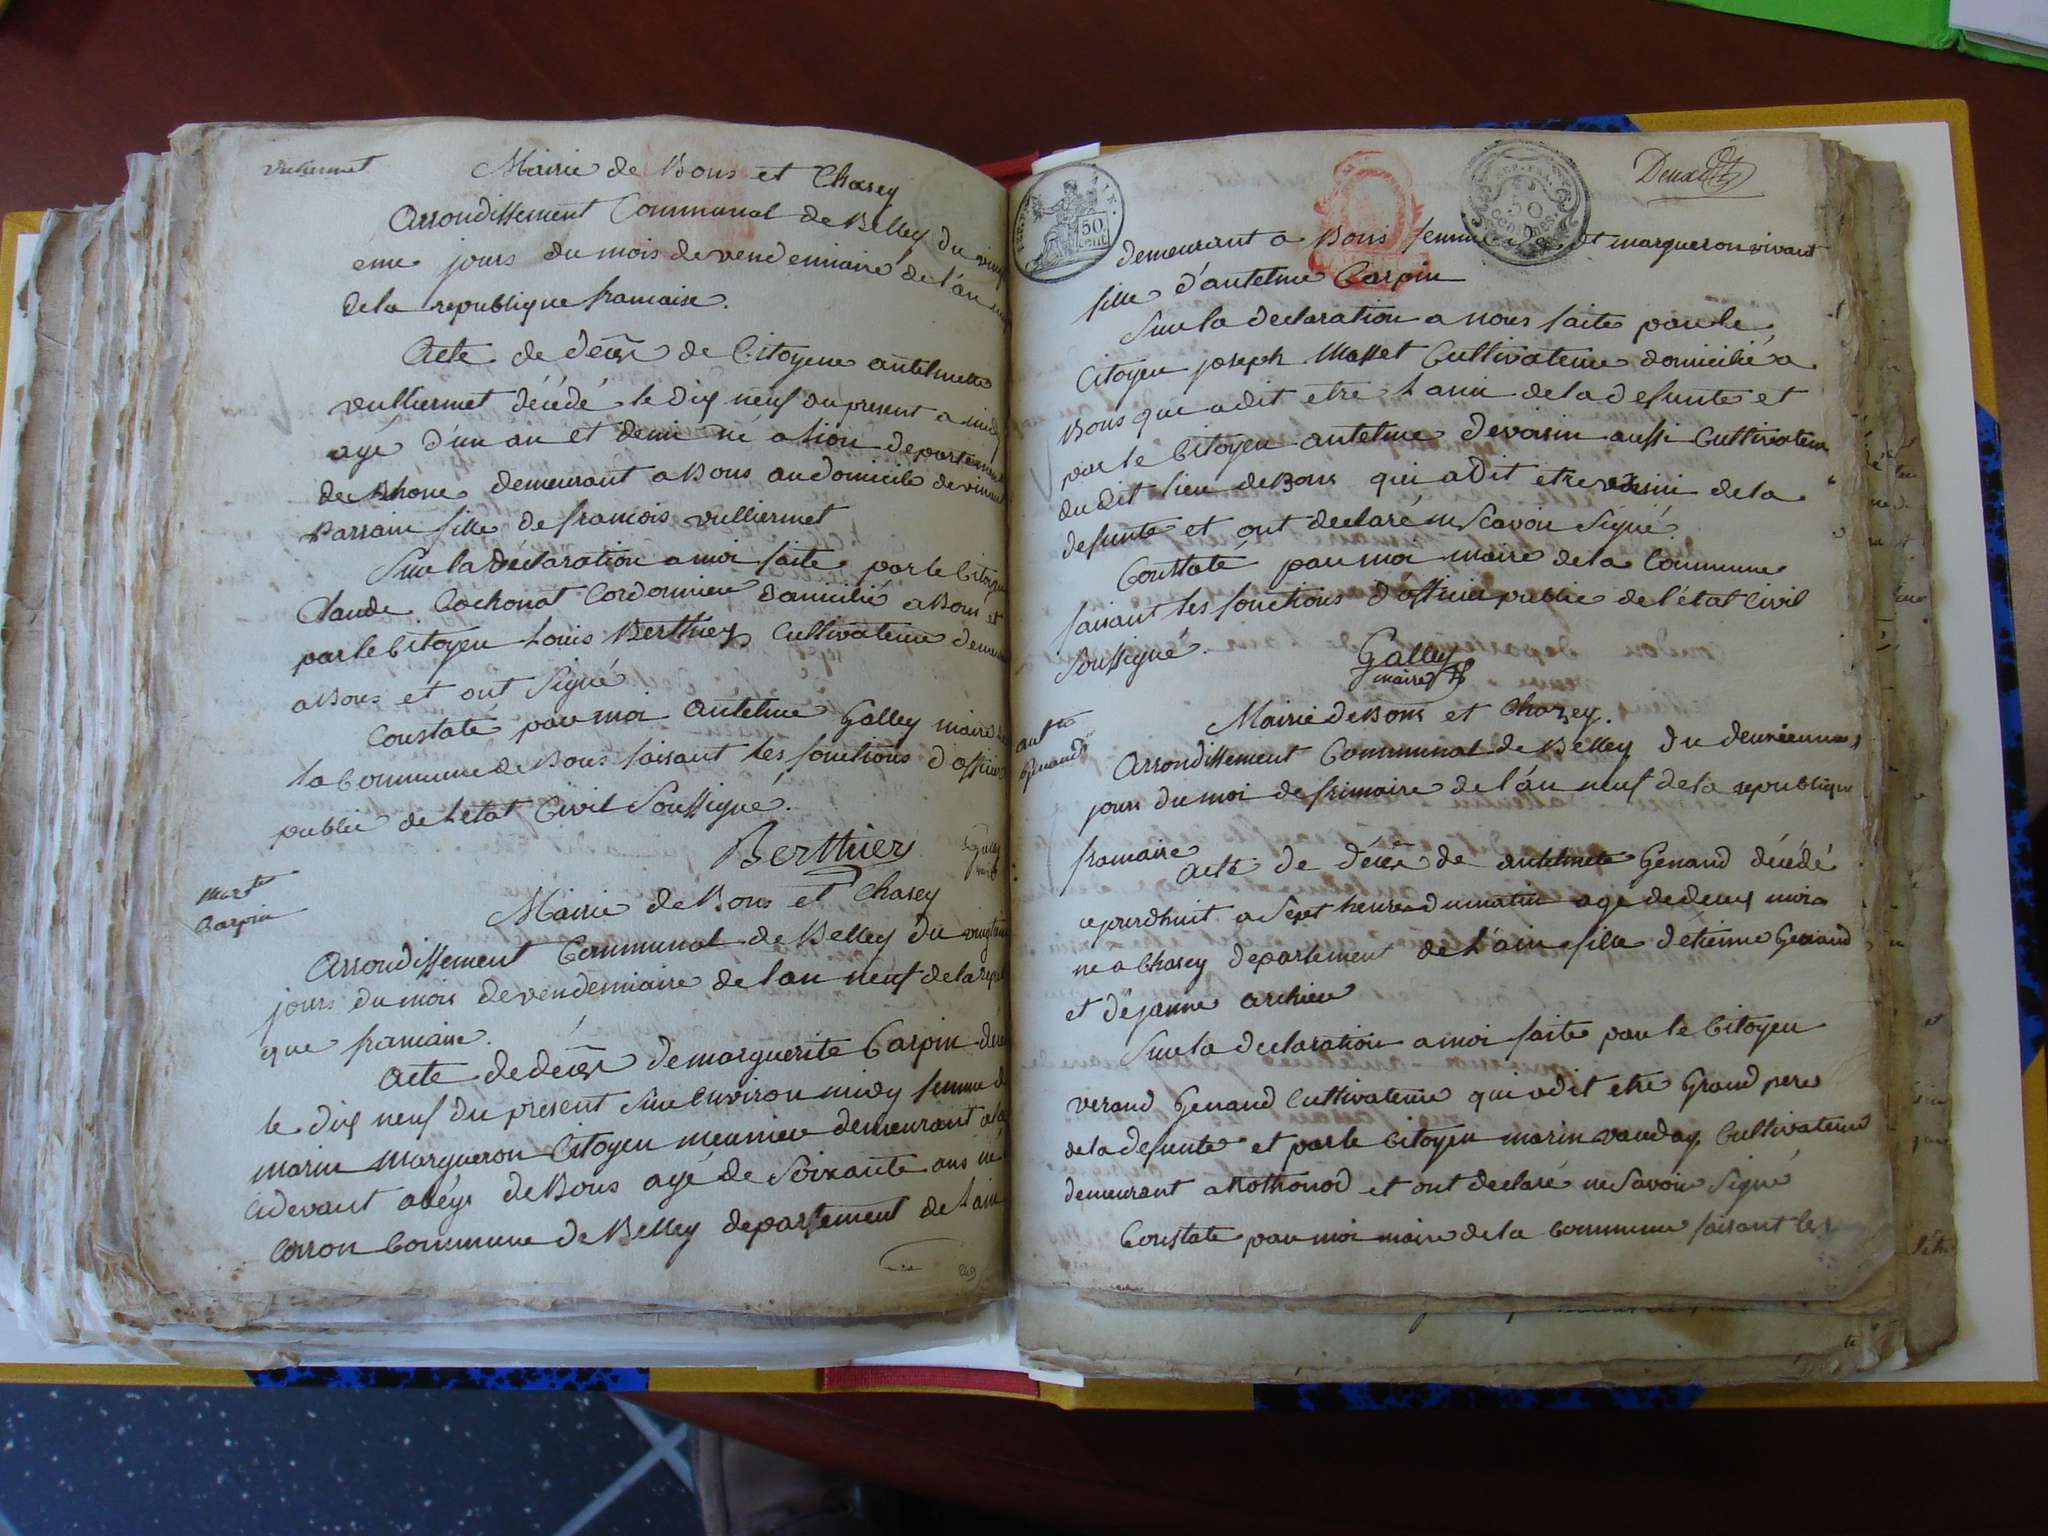 Vulliermet
Mairie de Bons et Chasey
Arrondissement Communal de Belley du
eme jours du mois de vendemiaire de l'an
de la republique francaise.
Acte de décès de Citoyene antelmette
vulliermet décédé le dix neuf du present a midy
age d'un an et demi né a Lion departement
de Rhone demeurant a Bons au domicile de
Parrain fille de francois vulliermet
Sur la déclaration a moi faite par le Citoyen
Claude Cochonat Cordonnier domicilié a Bons et
par le Citoyen Louis Berthier Cultivateur
a Bons et ont Signé
Constaté par moi antelme Galley maire
la commune de Bons faisant les fonctions d'officier
public de letat Civil Soussigné.
Berthier
Galley
Marg^te
Carpin
Mairie de Bons et Chasey
Arrondissement Communal de Belley du
jours du mois de vendemiaire de lan neuf de la republi
que francaise.
Acte de décès de marguerite Carpin
le dix neuf du present sur lenviron midy femme de
marin margueron Citoyen meunier demeurant
cidevant de Bons agé de Soixante ans né
Coron Commune de Belley departement de Lain
249
50 cent
50
centimes
REP. FRA.
demeurant a Bons femme et margueron vivant
fille d'antelme Carpin
Sur la declaration a nous faite par le
Citoyen joseph Masset Cultivateur domicilié a
Bons qui a dit etre Lami de la defunte et
par le Citoyen antelme devosin aussi Cultivateur
du dit lieu de Bons qui a dit etre voisin de la
defunte et ont declaré ne Scavoir Signé.
Constaté par moi maire de la Commune
faisant les fonctions d'officier public de l'état Civil
Soussigné.
Galley
maire
ant^tte
Genand
Mairie de Bons et Chazey.
Arrondissement Communal de Belley du deuxieme
jours du moi de frimaire de l'an neuf de la republique
francaise
Acte de décès de antelmette Genand décédé
ce jourdhuit a Sept heures du matin age de deux mois
né a Chasey departement de L'ain fille détienne Genand
et de janne archieu
Sur la declaration a moi faite par le Citoyen
verand Genand Cultivateur qui a dit etre Grand pere
de la defunte et par le Citoyen marin vauday Cultivateur
demeurant a Rothonod et ont declaré ne Savoir Signé
Constate par moi maire de la Commune faisant les